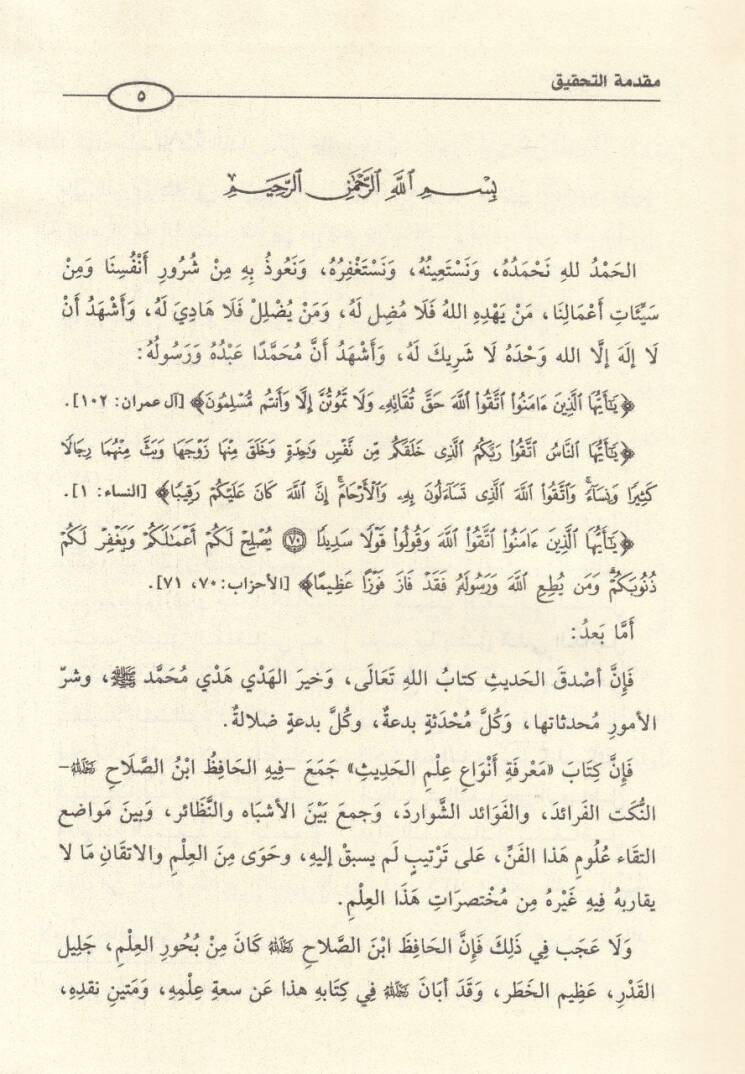 مقدمة التحقيق
٥
بِسْمِ اللَّهِ الرَّحْمَنِ الرَّحِيمِ
الحَمْدُ للهِ نَحْمَدُهُ، وَنَسْتَعِينُهُ، وَنَسْتَغْفِرُهُ، وَنَعُوذُ بِهِ مِنْ شُرُورِ أَنْفُسِنَا وَمِنْ
سَيِّئَاتِ أَعْمَالِنَا، مَنْ يَهْدِهِ اللهُ فَلَا مُضِل لَهُ، وَمَنْ يُضْلِلْ فَلَا هَادِيَ لَهُ، وَأَشْهَدُ أَنْ
لَا إِلَهَ إِلَّا الله وَحْدَهُ لَا شَرِيكَ لَهُ، وَأَشْهَدُ أَنَّ مُحَمَّدًا عَبْدُهُ وَرَسُولُهُ:
﴿يَٰٓأَيُّهَا ٱلَّذِينَ ءَامَنُوا۟ ٱتَّقُوا۟ ٱللَّهَ حَقَّ تُقَاتِهِۦ وَلَا تَمُوتُنَّ إِلَّا وَأَنتُم مُّسْلِمُونَ﴾ [آل عمران: ١٠٢].
﴿يَٰٓأَيُّهَا ٱلنَّاسُ ٱتَّقُوا۟ رَبَّكُمُ ٱلَّذِى خَلَقَكُم مِّن نَّفْسٍ وَٰحِدَةٍ وَخَلَقَ مِنْهَا زَوْجَهَا وَبَثَّ مِنْهُمَا رِجَالًا
كَثِيرًا وَنِسَآءً ۚ وَٱتَّقُوا۟ ٱللَّهَ ٱلَّذِى تَسَآءَلُونَ بِهِۦ وَٱلْأَرْحَامَ ۚ إِنَّ ٱللَّهَ كَانَ عَلَيْكُمْ رَقِيبًا﴾ [النساء: ١].
﴿يَٰٓأَيُّهَا ٱلَّذِينَ ءَامَنُوا۟ ٱتَّقُوا۟ ٱللَّهَ وَقُولُوا۟ قَوْلًا سَدِيدًا ٧٠ يُصْلِحْ لَكُمْ أَعْمَٰلَكُمْ وَيَغْفِرْ لَكُمْ
ذُنُوبَكُمْ ۗ وَمَن يُطِعِ ٱللَّهَ وَرَسُولَهُۥ فَقَدْ فَازَ فَوْزًا عَظِيمًا﴾ [الأحزاب: ٧٠، ٧١].
أَمَّا بَعدُ:
فَإِنَّ أصْدقَ الحَديثِ كتابُ اللهِ تَعَالَى، وَخيرَ الهَدْي هَدْي مُحَمَّد ﷺ، وشرّ
الأمورِ مُحدثاتها، وَكُلَّ مُحْدَثَةٍ بدعةٌ، وكُلَّ بدعةٍ ضلالةٌ.
فَإِنَّ كِتَابَ «مَعْرِفَةِ أَنْوَاعِ عِلْمِ الحَدِيثِ» جَمَعَ -فِيهِ الحَافِظُ ابْنُ الصَّلَاحِ رَحِمَهُ اللهُ-
النُّكَت الفَرائدَ، والفَوَائد الشَّواردَ، وَجمعَ بَيْنَ الأشبَاه والنَّظَائر، وَبينَ مَواضع
التقَاء عُلُومِ هَذا الفَنِّ، عَلى تَرْتيبٍ لَم يسبقْ إليهِ، وحَوَى مِنَ العِلْمِ والاتقَانِ مَا لا
يقاربهُ فِيهِ غَيْرهُ مِن مُخْتصرَاتِ هَذَا العِلْمِ.
وَلَا عَجَب فِي ذَلِكَ فَإِنَّ الحَافِظَ ابْنَ الصَّلَاحِ رَحِمَهُ اللهُ كَانَ مِنْ بُحُورِ العِلْمِ، جَلِيل
القَدْرِ، عَظِيم الخَطَر، وَقَد أبَانَ رَحِمَهُ اللهُ فِي كِتَابهِ هذا عَن سعةِ عِلْمِهِ، وَمَتينِ نقدِهِ،